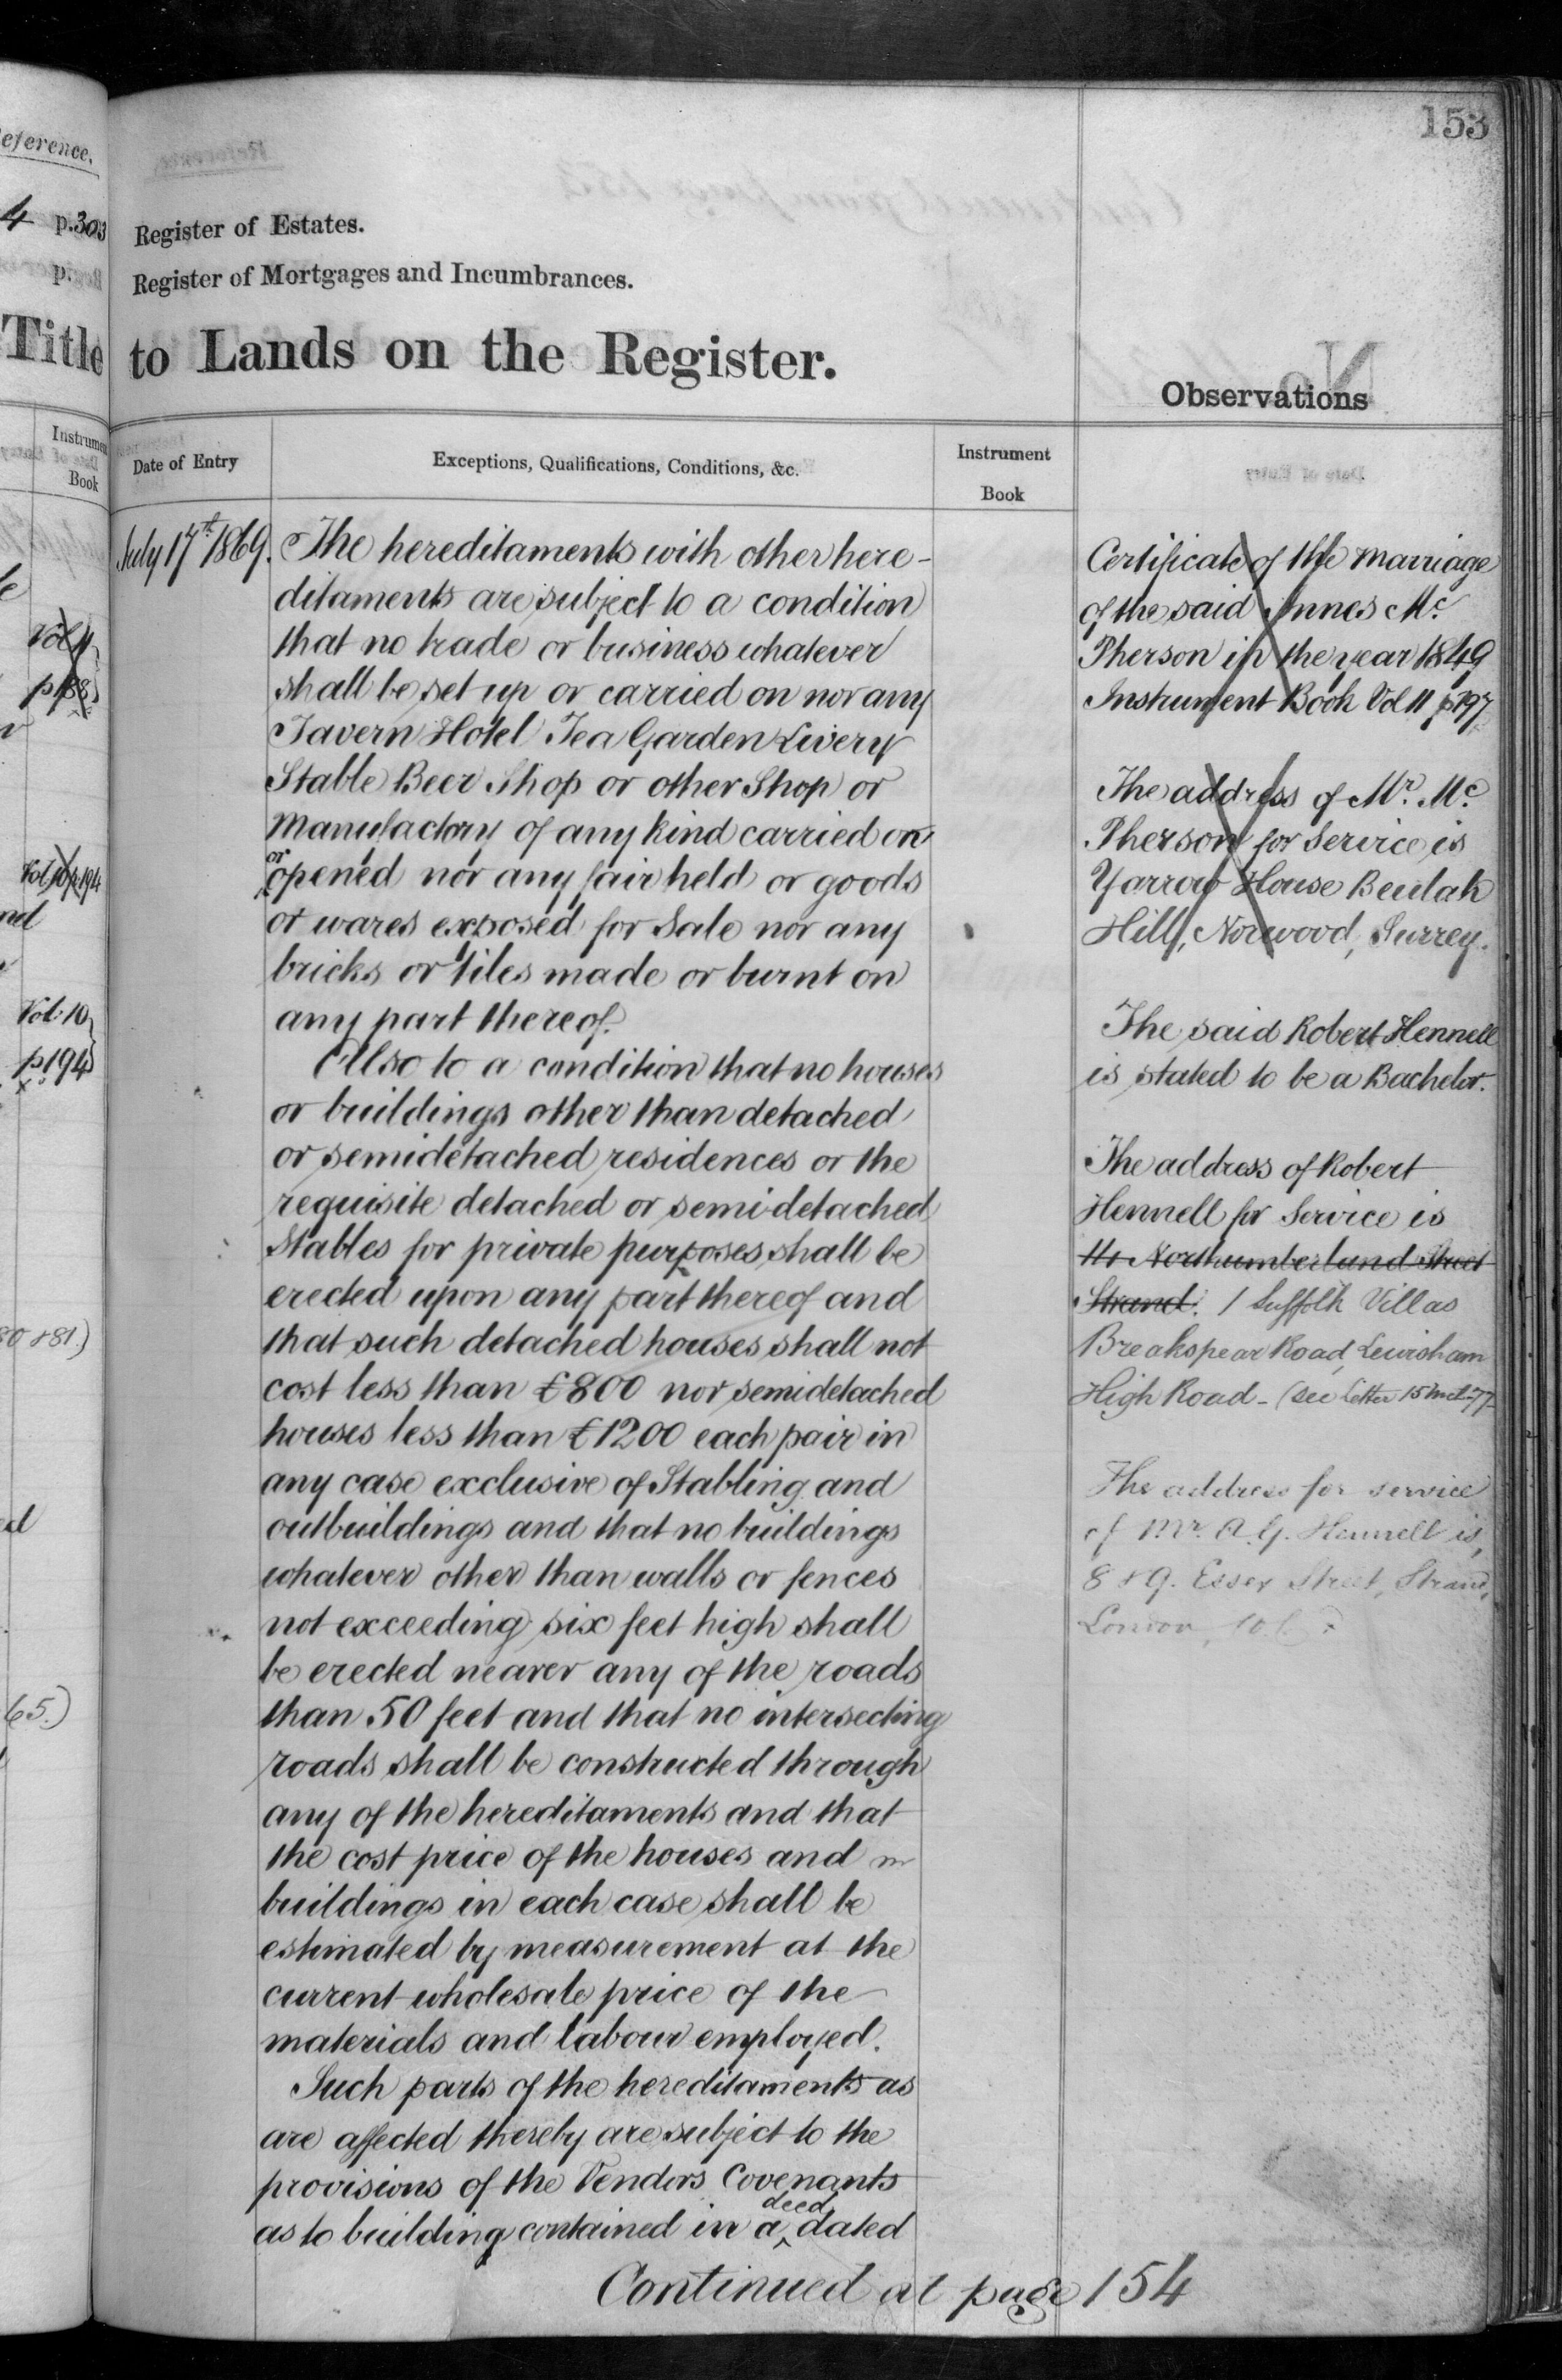 153
eference.
4 p.303
p.
Register of Estates.
Register of Mortgages and Incumbrances.
Title to Lands on the Register.
Observations
Instrumen
Book
Date of Entry
Exceptions, Qualifications, Conditions, &c.
Instrument
Book
Vol 11
p 188
Vol 10 p 194
Vol. 10
p 194
80 & 81.)
65.)
July 17th 1869.
The hereditaments with other here-
ditaments are subject to a condition
that no trade or business whatever
shall be set up or carried on nor any
Tavern Hotel Tea Garden Livery
Stable Beer Shop or other Shop or
Manufactory of any kind carried on
or
opened nor any fair held or goods
or wares exposed for sale nor any
bricks or tiles made or burnt on
any part thereof.
Also to a condition that no houses
or buildings other than detached
or semidetached residences or the
requisite detached or semi-detached
Stables for private purposes shall be
erected upon any part thereof and
that such detached houses shall not
cost less than £800 nor semidetached
houses less than £1200 each pair in
any case exclusive of Stabling and
outbuildings and that no buildings
whatever other than walls or fences
not exceeding six feet high shall
be erected nearer any of the roads
than 50 feet and that no intersecting
roads shall be constructed through
any of the hereditaments and that
the cost price of the houses and
buildings in each case shall be
estimated by measurement at the
current wholesale price of the
materials and labour employed.
Such parts of the hereditaments as
are affected thereby are subject to the
provisions of the Vendors Covenants
as to building contained in a deed dated
Continued at page 154
Certificate of the marriage
of the said Innes Mc.
Pherson in the year 1849
Instrument Book Vol 11 p 197
The address of Mr. Mc.
Pherson for Service is
Yarrow House Beulah
Hill, Norwood, Surrey.
The said Robert Hennell
is stated to be a Bachelor.
The address of Robert
Hennell for Service is
Northumberland Street
Strand. 1 Suffolk Villas
Breakspear Road, Lewisham
High Road - (see Letter 15
The address for service
of Mr. A. G. Hennell is,
8 & 9. Essex Street, Strand,
London, W.C.